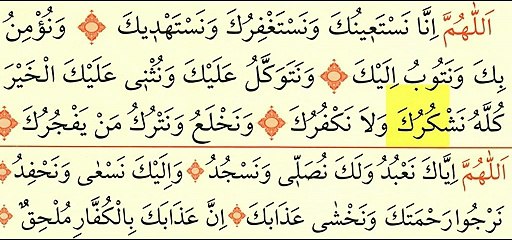 اَللّٰهُمَّ اِنَّا نَسْتَعِينُكَ وَنَسْتَغْفِرُكَ وَنَسْتَهْدِيكَ ۞ وَنُؤْمِنُ
بِكَ وَنَتُوبُ اِلَيْكَ ۞ وَنَتَوَكَّلُ عَلَيْكَ وَنُثْنٖى عَلَيْكَ الْخَيْرَ
كُلَّهُ نَشْكُرُكَ وَلَا نَكْفُرُكَ ۞ وَنَخْلَعُ وَنَتْرُكُ مَنْ يَفْجُرُكَ ۞
اَللّٰهُمَّ اِيَّاكَ نَعْبُدُ وَلَكَ نُصَلّٖى وَنَسْجُدُ ۞ وَاِلَيْكَ نَسْعٰى وَنَحْفِدُ ۞
نَرْجُوا رَحْمَتَكَ وَنَخْشٰى عَذَابَكَ ۞ اِنَّ عَذَابَكَ بِالْكُفَّارِ مُلْحِقٌ ۞